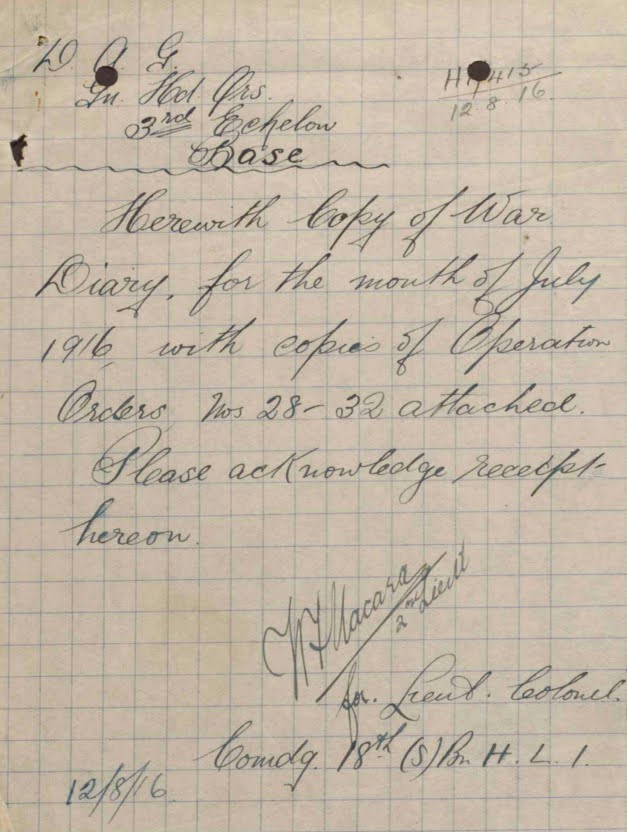 D. A. G.
Gn. Hd. Qrs.
3rd Echelon
Base
12. 8. 16.
Herewith Copy of War
Diary, for the month of July
1916, with copies of Operation
Orders Nos 28 - 32 attached.
Please acknowledge receipt
hereon.
Macara
2nd Lieut
for. Lieut. Colonel.
Comdg. 18th (S) Bn. H. L. I.
12/8/16.